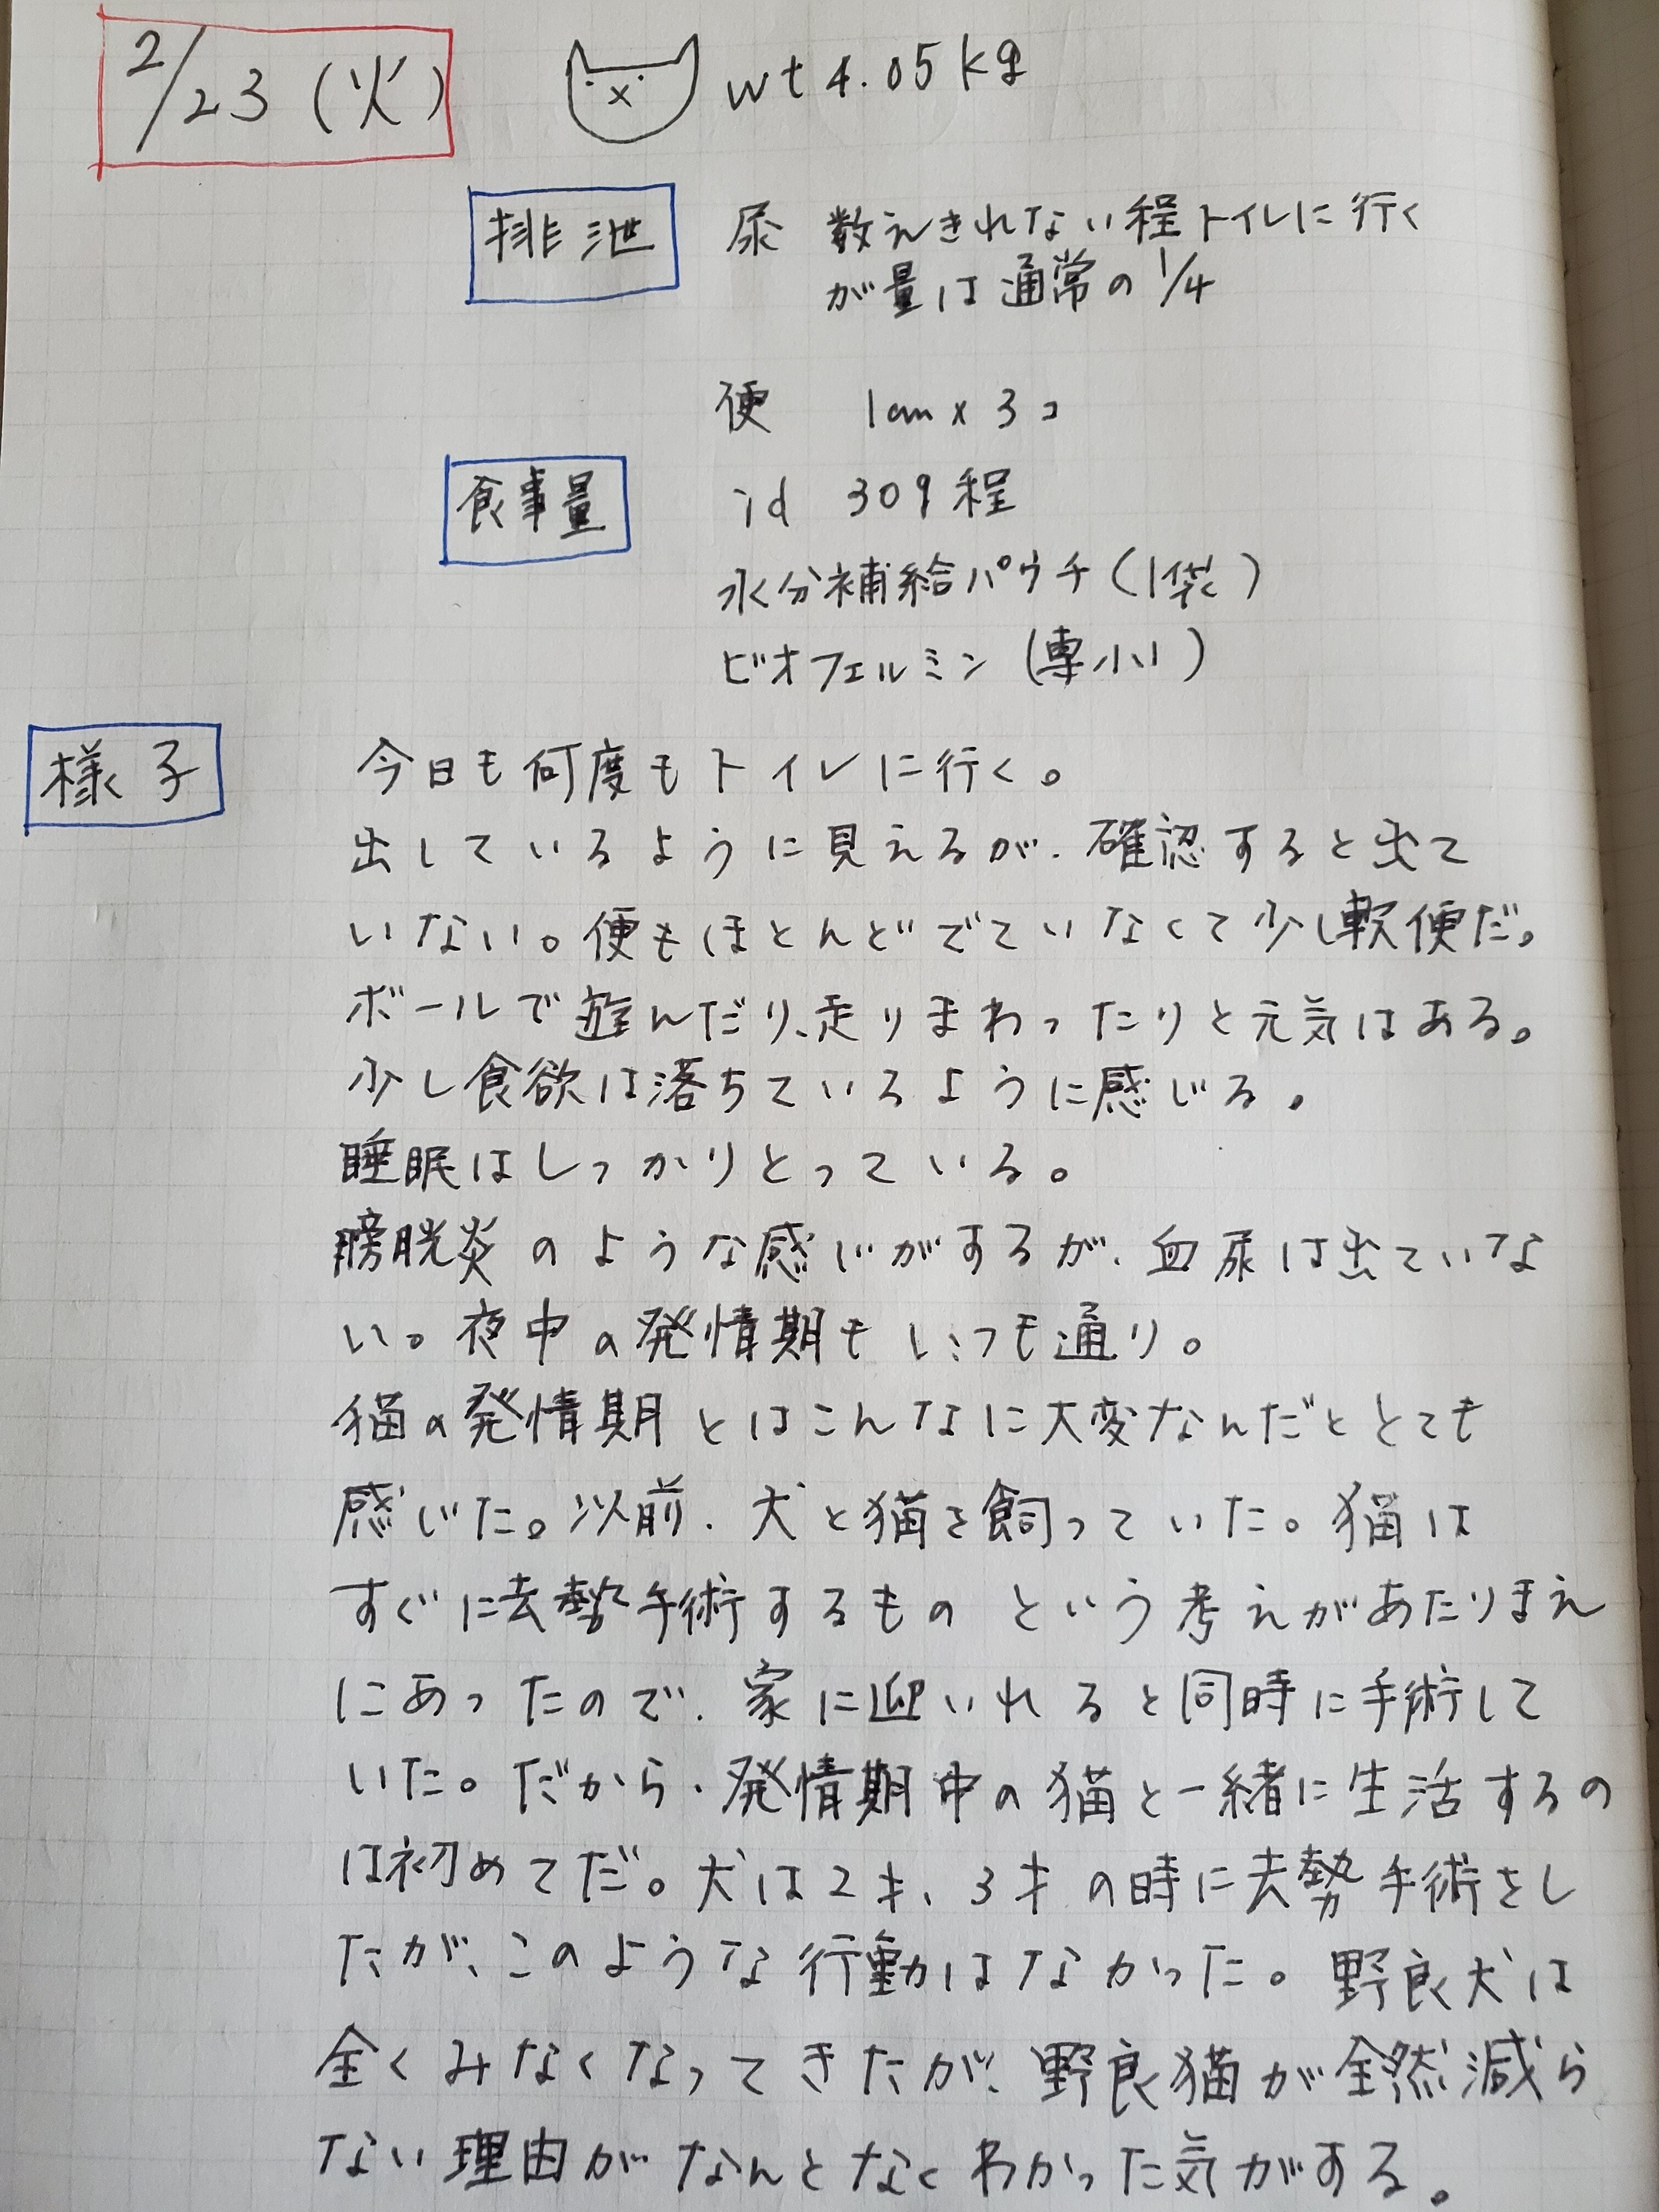 2/23 (火) wt 4.05kg
排泄 尿 数えきれない程トイレに行く
が量は通常の1/4
便 1cm×3コ
食事量 id 30g程
水分補給パウチ(1袋)
ビオフェルミン(専小1)
様子 今日も何度もトイレに行く。
出しているように見えるが、確認すると出て
いない。便もほとんどでていなくて少し軟便だ。
ボールで遊んだり、走りまわったりと元気はある。
少し食欲は落ちているように感じる。
睡眠はしっかりとっている。
膀胱炎のような感じがするが、血尿は出ていな
い。夜中の発情期もいつも通り。
猫の発情期とはこんなに大変なんだととても
感じた。以前、犬と猫を飼っていた。猫は
すぐに去勢手術するものという考えがあたりまえ
にあったので、家に迎いれると同時に手術して
いた。だから、発情期中の猫と一緒に生活するの
は初めてだ。犬は2才、3才の時に去勢手術をし
たが、このような行動はなかった。野良犬は
全くみなくなってきたが、野良猫が全然減ら
ない理由がなんとなくわかった気がする。